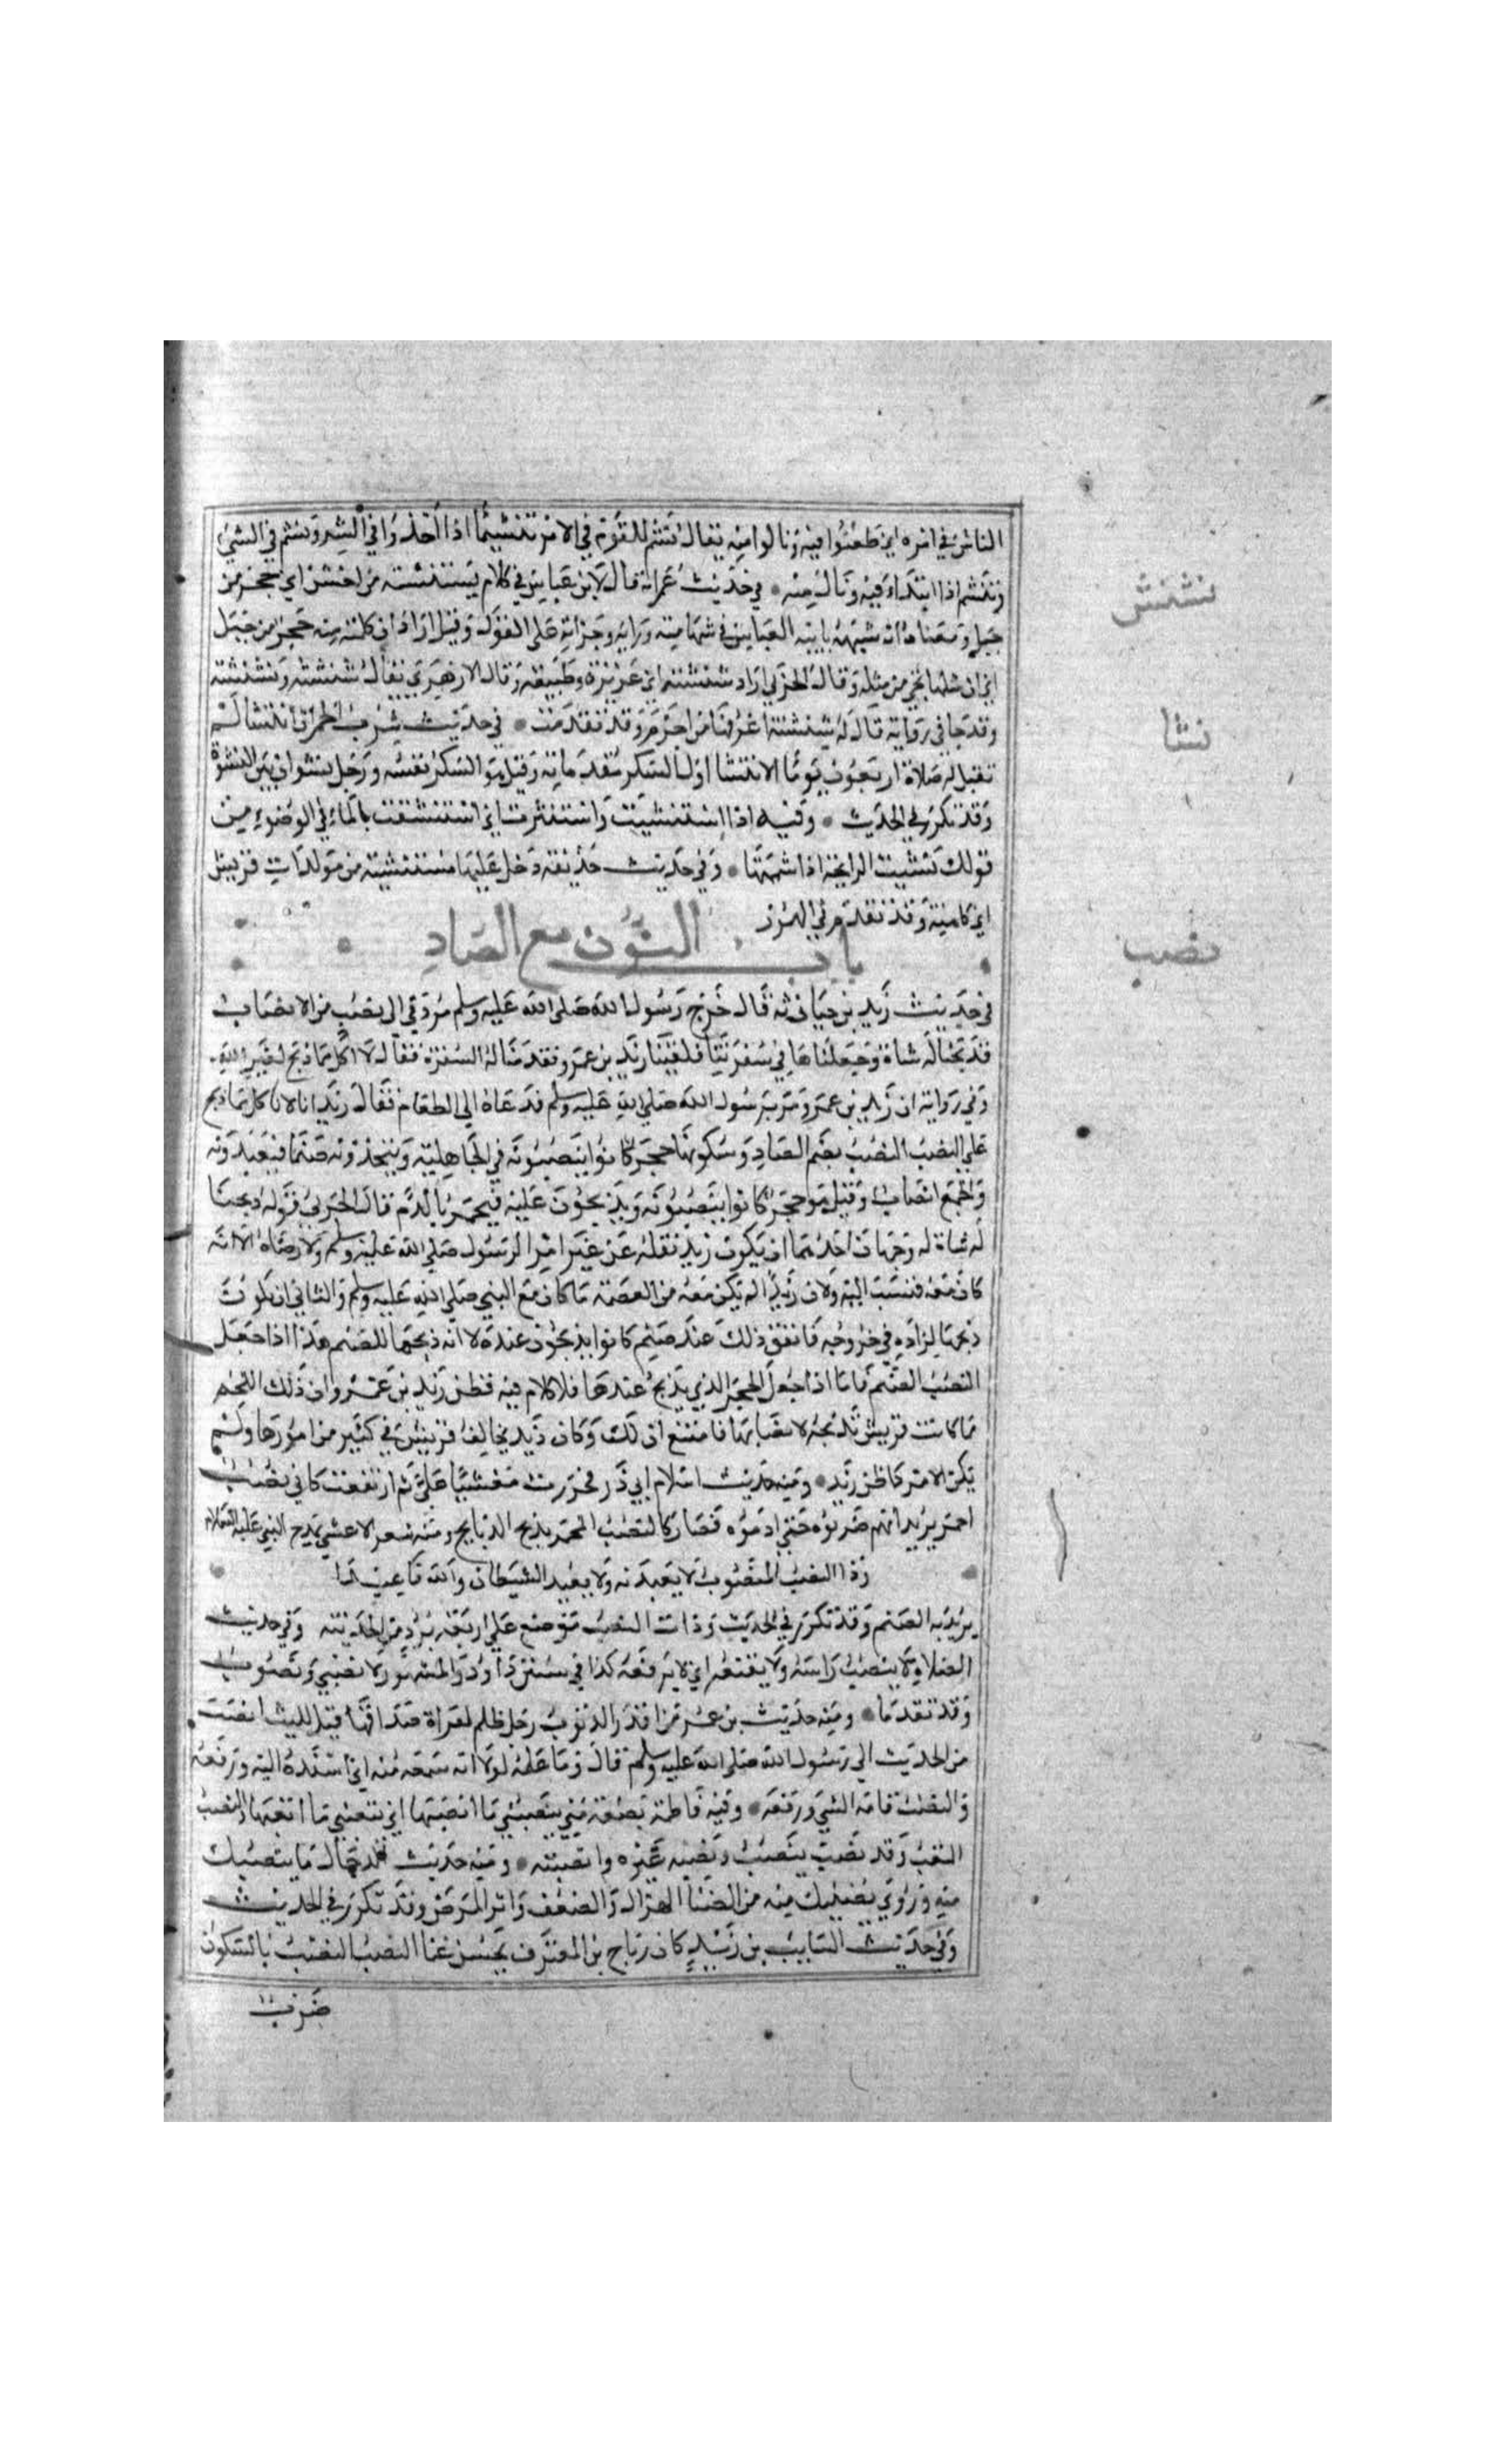 الناس في امره اي طعنوا فيه ونالوا منه يقال نشم للقوم في الامر تنشيما اذا اخذوا في الشر ونشم في الشيء
وتنشم اذا ابتداء فيه ونال منه • في حديث عمر انه قال لابن عباس في كلام نشنشة من اخشن اي حجر من
جبل ومعناه انه شبهه بابيه العباس في شهامته ورايه وجراته على القول وقيل اراد ان كلمته منه حجر من جبل
اي ان مثلها يجي من مثله وقال الحربي اراد شنشنة اي غريزة وطبيعة وقال الازهري يقال شنشنة ونشنشة
نشنش
وقد جا في رواية قال له شنشنة اعرفها من اخزم وقد تقدمت • في حديث شرب الخمر ان انتشا لم
نشا
تقبل له صلاة اربعون يوما الانتشا اول السكر مقدماته وقيل هو السكر نفسه ورجل نشوان بين النشوة
وقد تكرر في الحديث • وفيه اذا استنشيت واستنثرت اي استنشقت بالماء في الوضوء من
قولك نشيت الرايحة اذا شممتها • وفي حديث خديجة دخل عليها مستنشية من مولدات قريش
اي كاهنة وقد تقدم في الهمز
باب النون مع الصاد
نصب
في حديث زيد بن حارثة قال خرج رسول الله صلى الله عليه وسلم مردفي الى نصب من الانصاب
فذبحنا له شاة وجعلناها في سفرتنا فلقينا زيد بن عمرو فقدمنا له السفرة فقال لا اكل مما ذبح لغير الله
وفي رواية ان زيد بن عمرو مر برسول الله صلى الله عليه وسلم فدعاه الى الطعام فقال زيد انا لا ناكل مما ذبح
على النصب النصب بضم الصاد وسكونها حجر كانوا ينصبونه في الجاهلية ويتخذونه صنما فيعبدونه
والجمع انصاب وقيل هو حجر كانوا ينصبونه ويذبحون عليه فيحمر بالدم قال الحربي قوله ذبحنا
له شاة له وجهان احدهما ان يكون زيد فعله عن غير امر الرسول صلى الله عليه وسلم ولا رضاه الا انه
كان معه فنسب اليه ولان زيدا لم يكن معه من العصمة ما كان مع النبي صلى الله عليه وسلم والثاني ان يكون
ذبحها لزاده في خروجه فاتفق ذلك عند صنم كانوا يذبحون عنده لا انه ذبحها للصنم هذا اذا جعل
النصب الصنم فاما اذا جعل الحجر الذي يذبح عندها فلا كلام فيه فظن زيد بن عمرو ان ذلك اللحم
مما كانت قريش تذبحه لانصابها فامتنع لذلك وكان زيد يخالف قريش في كثير من امورها ولم
يكن الامر كما ظن زيد • ومنه حديث اسلام ابي ذر فخررت مغشيا علي ثم ارتفعت كاني نصب
احمر يريد انهم ضربوه حتى ادموه فصار كالنصب المحمر بذبح الذبايح ومنه شعر الاعشى يمدح النبي عليه السلام
وذا النصب المنصوب لا تعبدنه ولا تعبد الشيطان والله فاعبدا
يريد به الصنم وقد تكرر في الحديث وذات النصب موضع على اربعة برد من المدينة وفي حديث
الصلاة لا ينصب راسه ولا يقنعه اي لا يرفعه كذا في سنن ابي داود والمشهور لا يصبي ويصوب
وقد تقدما • ومنه حديث بن عمر من اقذر الذنوب رجل ظلم امراة صداقها قيل لليث انصب
بن عمر الحديث الى رسول الله صلى الله عليه وسلم قال وما علمه لولا انه سمعه منه اي اسنده اليه ورفعه
والنصب اقامة الشي ورفعه • وفيه فاطمة بضعة مني ينصبني ما انصبها اي يتعبني ما اتعبها والنصب
التعب وقد نصب ينصب ونصبه غيره وانصبه • ومنه حديث الدجال ما ينصبك
منه وروي يضنيك منه من الضنا الهزال والضعف واثر المرض وقد تكرر في الحديث
وفي حديث السايب بن يزيد كان رباح بن المغترف يحسن غنا النصب النصب بالسكون
ضرب